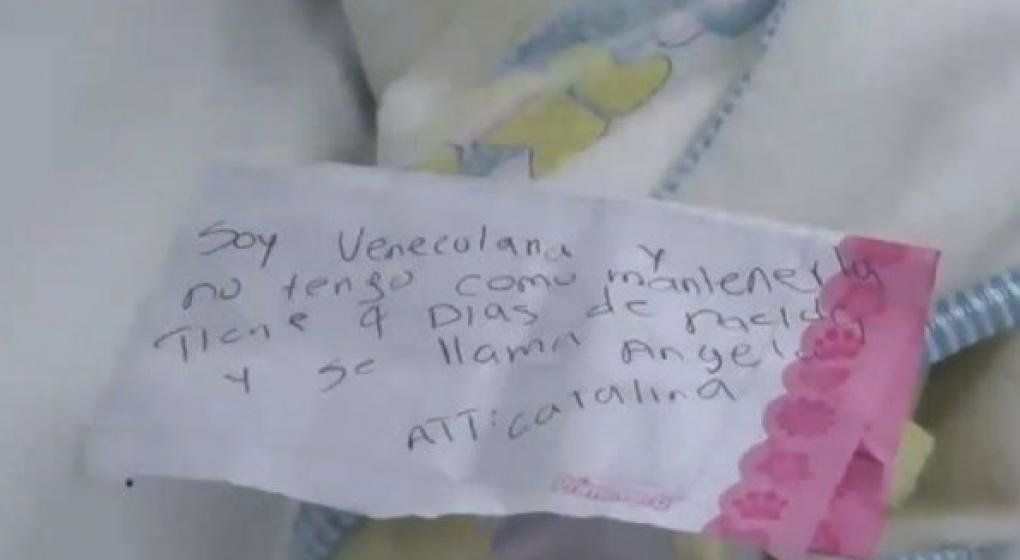 Soy Veneculana y
no tengo como mantenerla
Tiene 4 Dias de nacida
y se llama Angel
ATT: Catalina